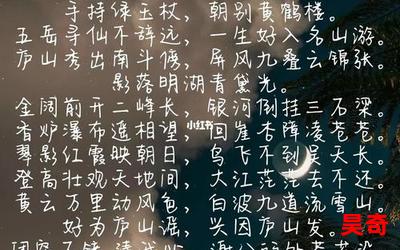 手持绿玉杖，朝别黄鹤楼。
五岳寻仙不辞远，一生好入名山游。
庐山秀出南斗傍，屏风九叠云锦张。
影落明湖青黛光。
金阙前开二峰长，银河倒挂三石梁。
小红书
香炉瀑布遥相望，回崖沓嶂凌苍苍。
翠影红霞映朝日，鸟飞不到吴天长。
登高壮观天地间，大江茫茫去不还。
黄云万里动风色，白波九道流雪山。
好为庐山谣，兴因庐山发。
昊奇